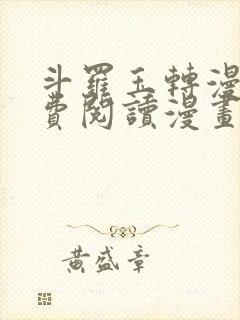 斗羅玉轉漫
費閱讀漫畫
黃盛章